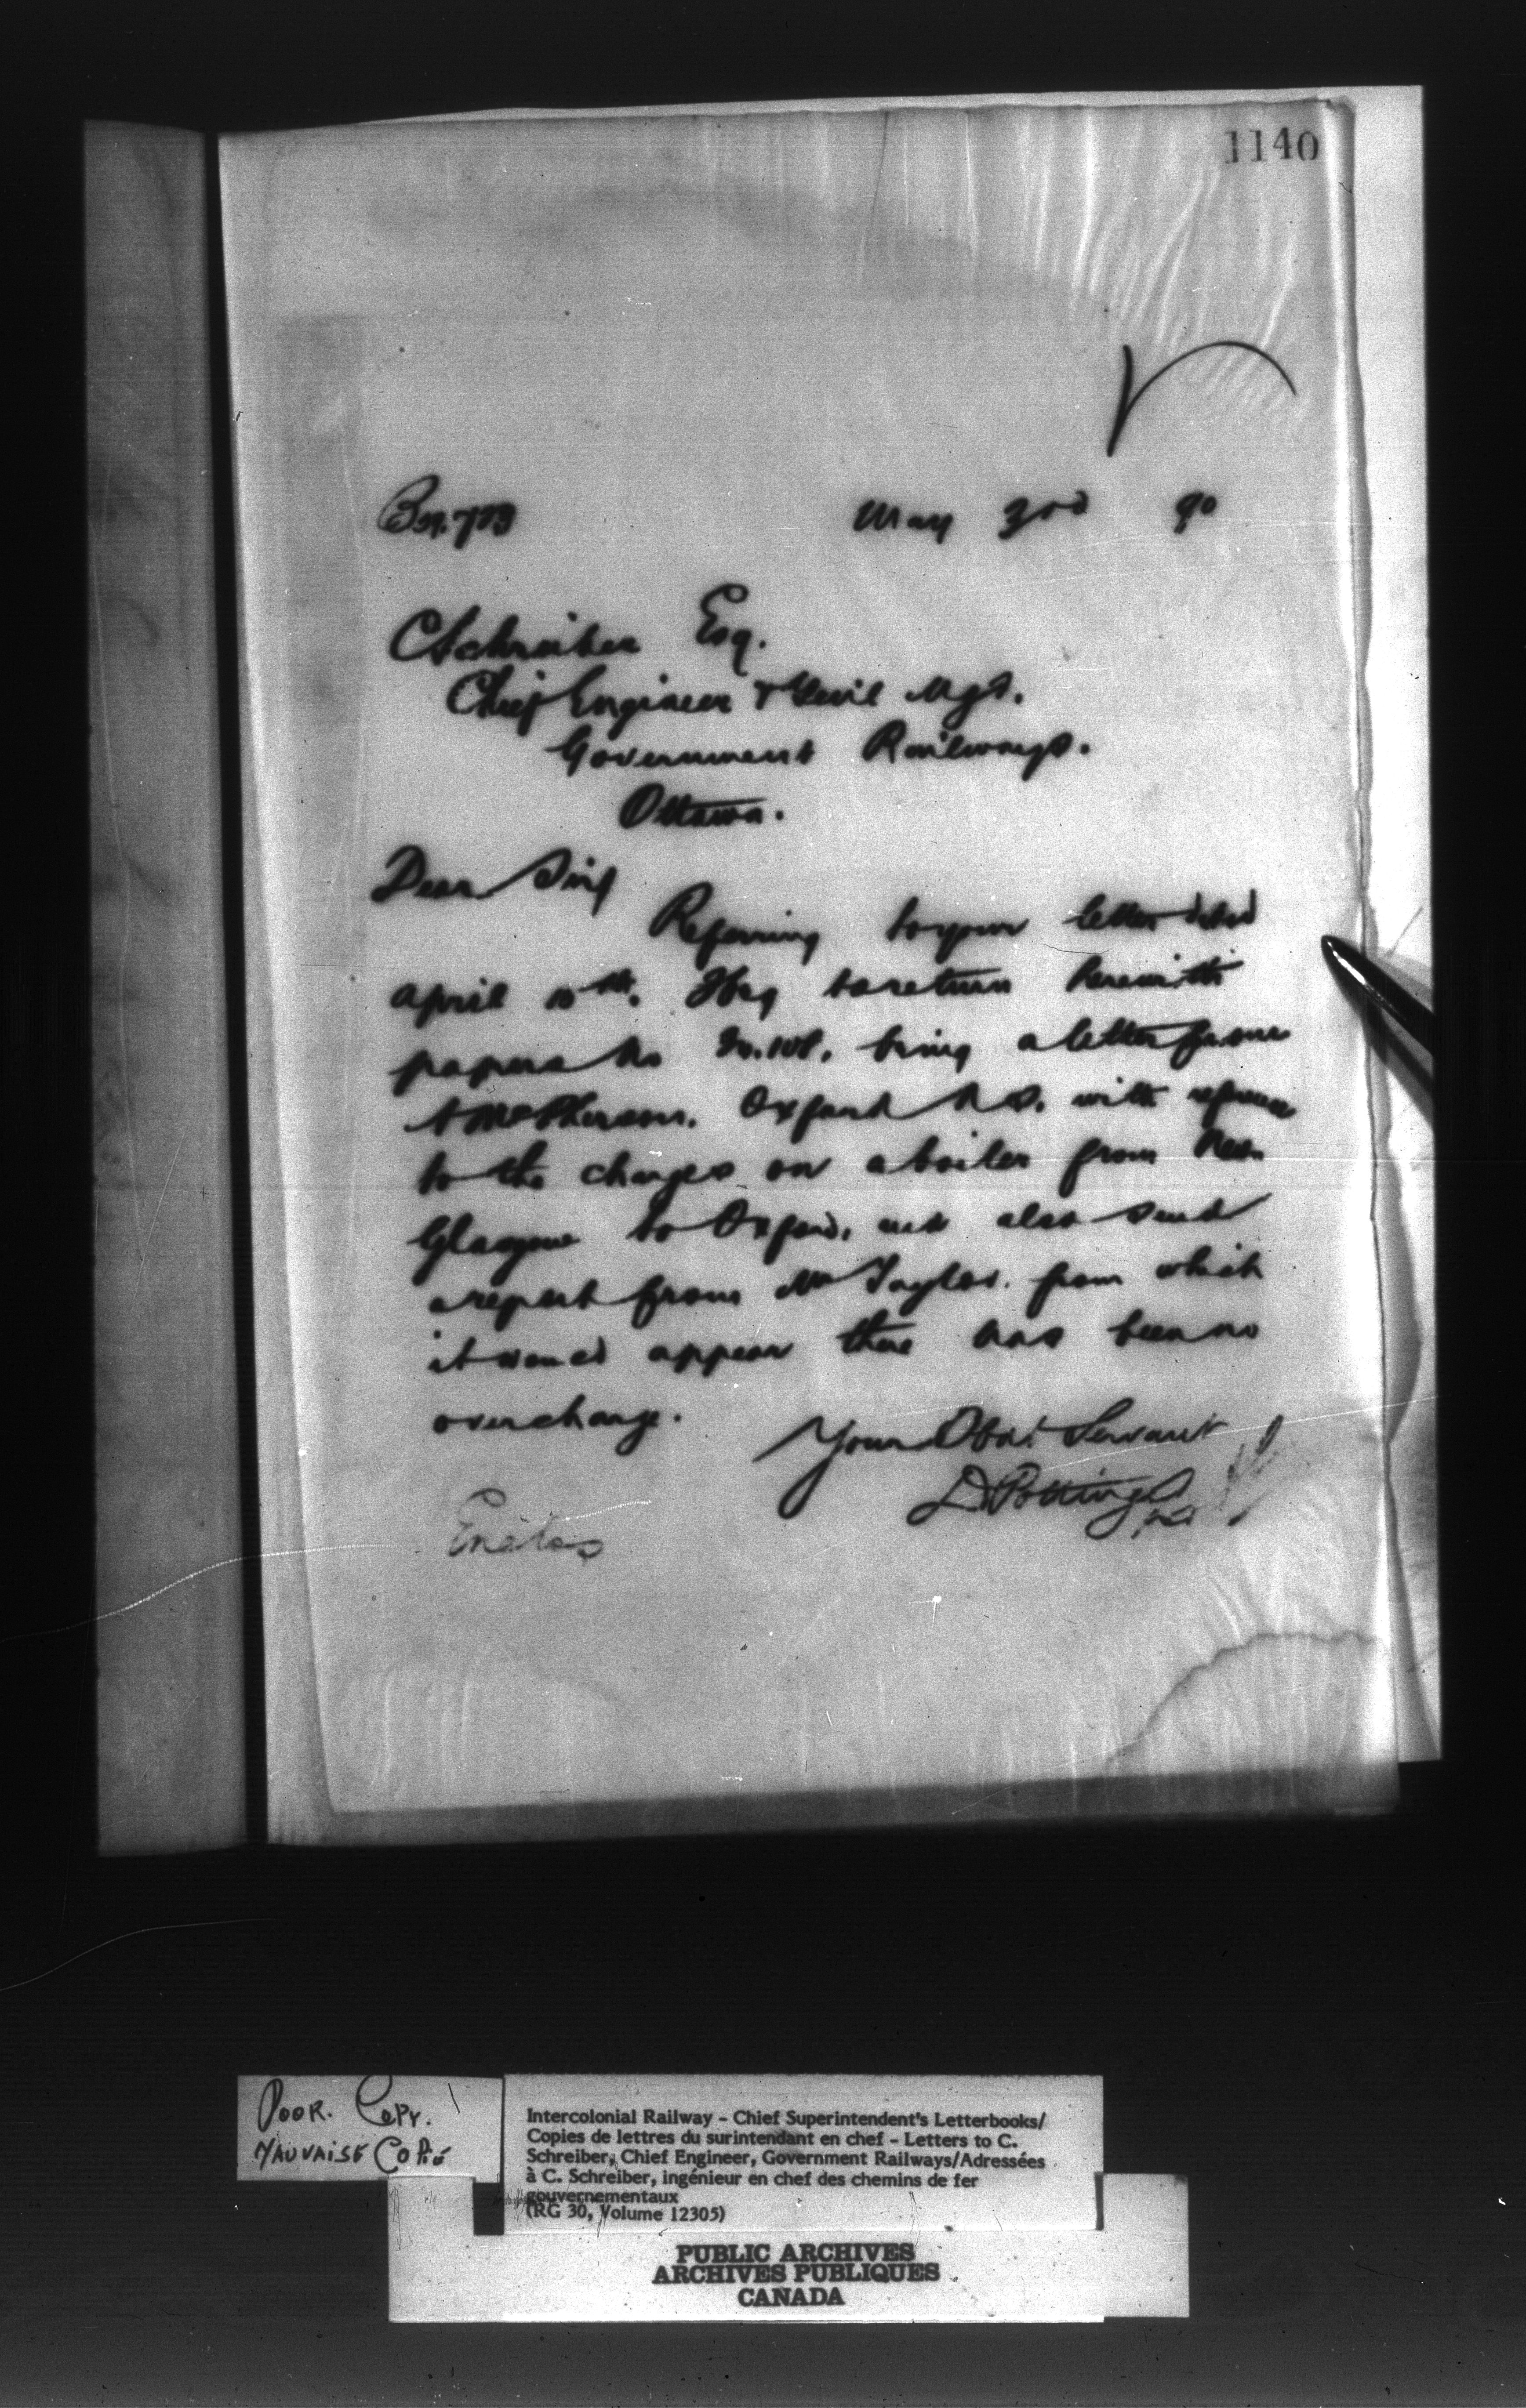 1140
May 3rd 90
C Schreiber Esq.
Chief Engineer & Genl Mgr.
Government Railways.
Ottawa.
Dear Sir,
Referring to your letter dated
April 10th. I beg to return herewith
papers No being a letter from
A McPherson. Oxford N.S. with reference
to the charges on a boiler from New
Glasgow to Oxford, and also send
a report from Mr Taylor. from which
it would appear there has been no
overchange.
Your Obdt Servant
D. Pottinger
Enclos
Poor. Copy.
Mauvaise Copie
Intercolonial Railway - Chief Superintendent's Letterbooks/
Copies de lettres du surintendant en chef - Letters to C.
Schreiber, Chief Engineer, Government Railways/Adressées
à C. Schreiber, ingénieur en chef des chemins de fer
gouvernementaux
(RG 30, Volume 12305)
PUBLIC ARCHIVES
ARCHIVES PUBLIQUES
CANADA